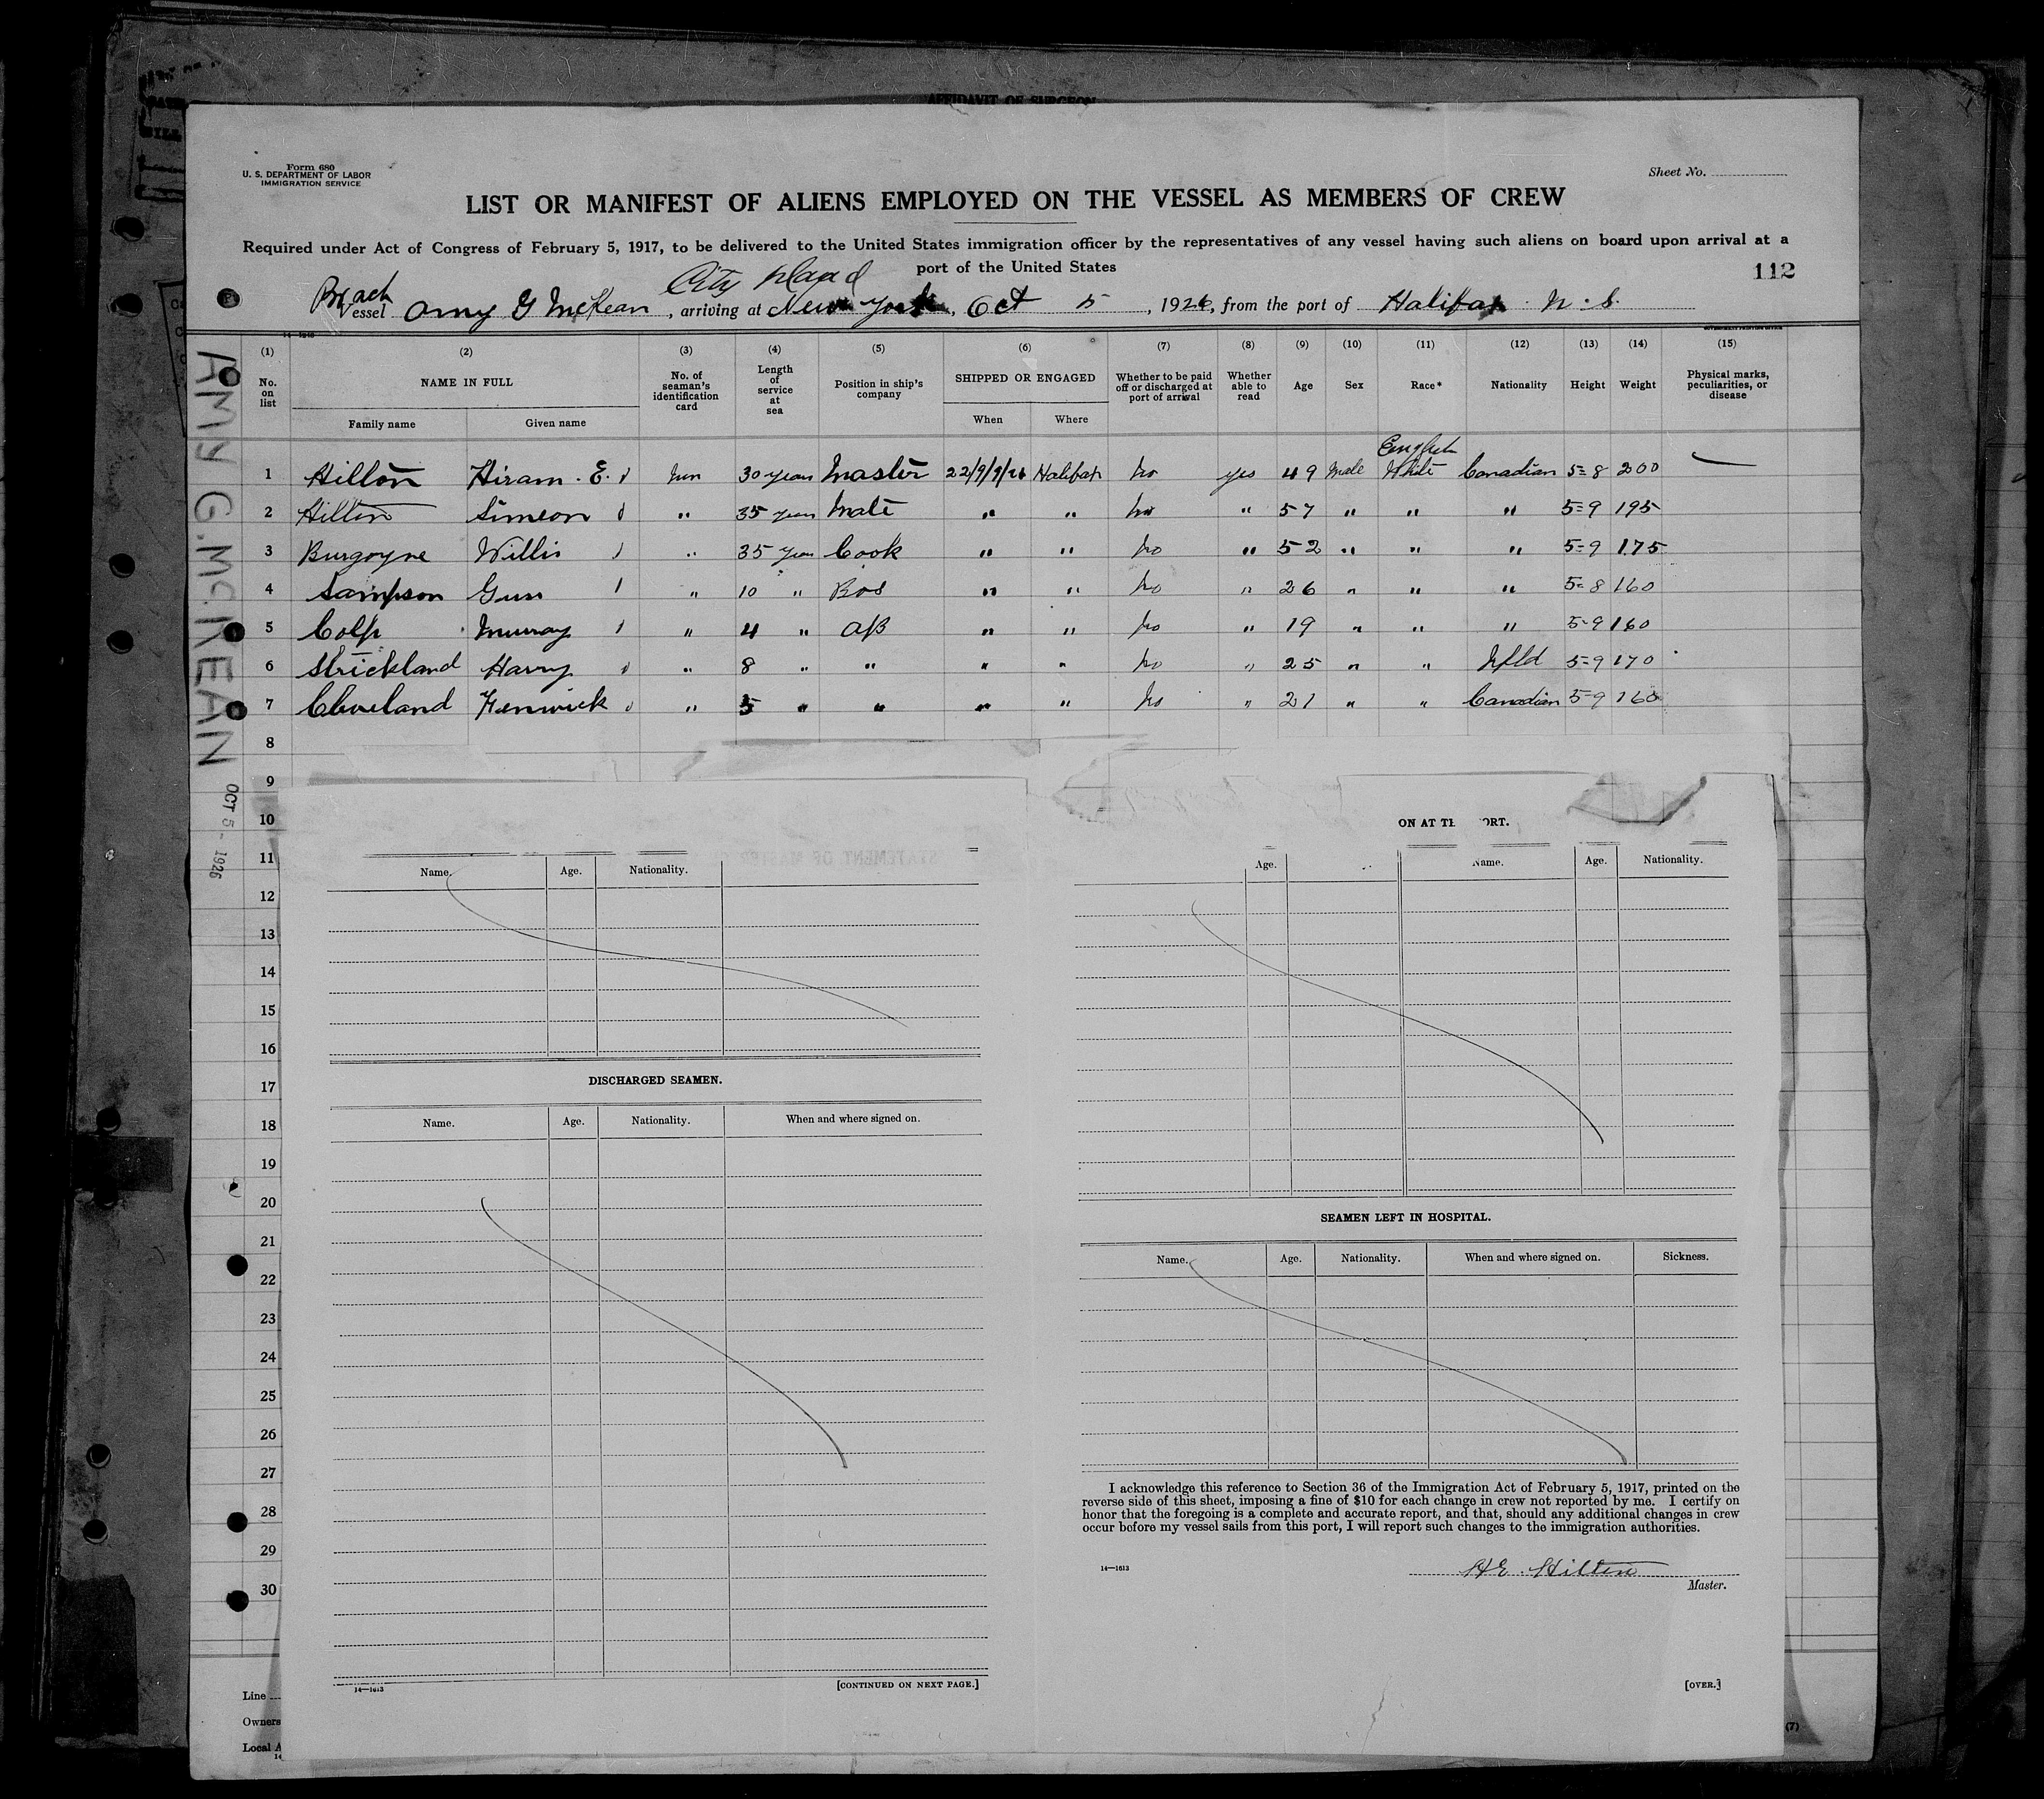 AFFIDAVIT OF SURGEON
Form 680
U. S. DEPARTMENT OF LABOR
IMMIGRATION SERVICE
Sheet No.
LIST OR MANIFEST OF ALIENS EMPLOYED ON THE VESSEL AS MEMBERS OF CREW
Required under Act of Congress of February 5, 1917, to be delivered to the United States immigration officer by the representatives of any vessel having such aliens on board upon arrival at a
port of the United States
112
City Island
Vessel Amy G McKean, arriving at New York, Oct 5, 1926, from the port of Halifax N.S.
(1) (2) (3) (4) (5) (6) (7) (8) (9) (10) (11) (12) (13) (14) (15)
No. on list NAME IN FULL No. of seaman's identification card Length of service at sea Position in ship's company SHIPPED OR ENGAGED Whether to be paid off or discharged at port of arrival Whether able to read Age Sex Race* Nationality Height Weight Physical marks, peculiarities, or disease
Family name Given name When Where
English
1 Hilton Hiram. E. 30 years Master 22/9/26 Halifax no yes 49 Male White Canadian 5=8 200
2 Hilton Simeon " 35 years Mate " " no " 57 " " " 5=9 195
3 Burgoyne Willis " 35 years Cook " " no " 52 " " " 5=9 175
4 Sampson Gus " 10 " Bos " " no " 26 " " " 5=8 160
5 Colp Murray " 4 " AB " " no " 19 " " " 5-9 160
6 Strickland Harry " 8 " " " " no " 25 " " Nfld 5=9 170
7 Cleveland Fenwick " 5 " " " " no " 21 " " Canadian 5-9 160
8
9
10
11
12
13
14
15
16
17
18
19
20
21
22
23
24
25
26
27
28
29
30
AMY G. McKEAN
OCT 5 - 1926
Name. Age. Nationality.
DISCHARGED SEAMEN.
Name. Age. Nationality. When and where signed on.
14—1613
[CONTINUED ON NEXT PAGE.]
ON AT ORT.
Age. Name. Age. Nationality.
SEAMEN LEFT IN HOSPITAL.
Name. Age. Nationality. When and where signed on. Sickness.
I acknowledge this reference to Section 36 of the Immigration Act of February 5, 1917, printed on the
reverse side of this sheet, imposing a fine of $10 for each change in crew not reported by me. I certify on
honor that the foregoing is a complete and accurate report, and that, should any additional changes in crew
occur before my vessel sails from this port, I will report such changes to the immigration authorities.
14—1613
HE. Hilton
Master.
[OVER.]
Line
Owners
Local A
(7)